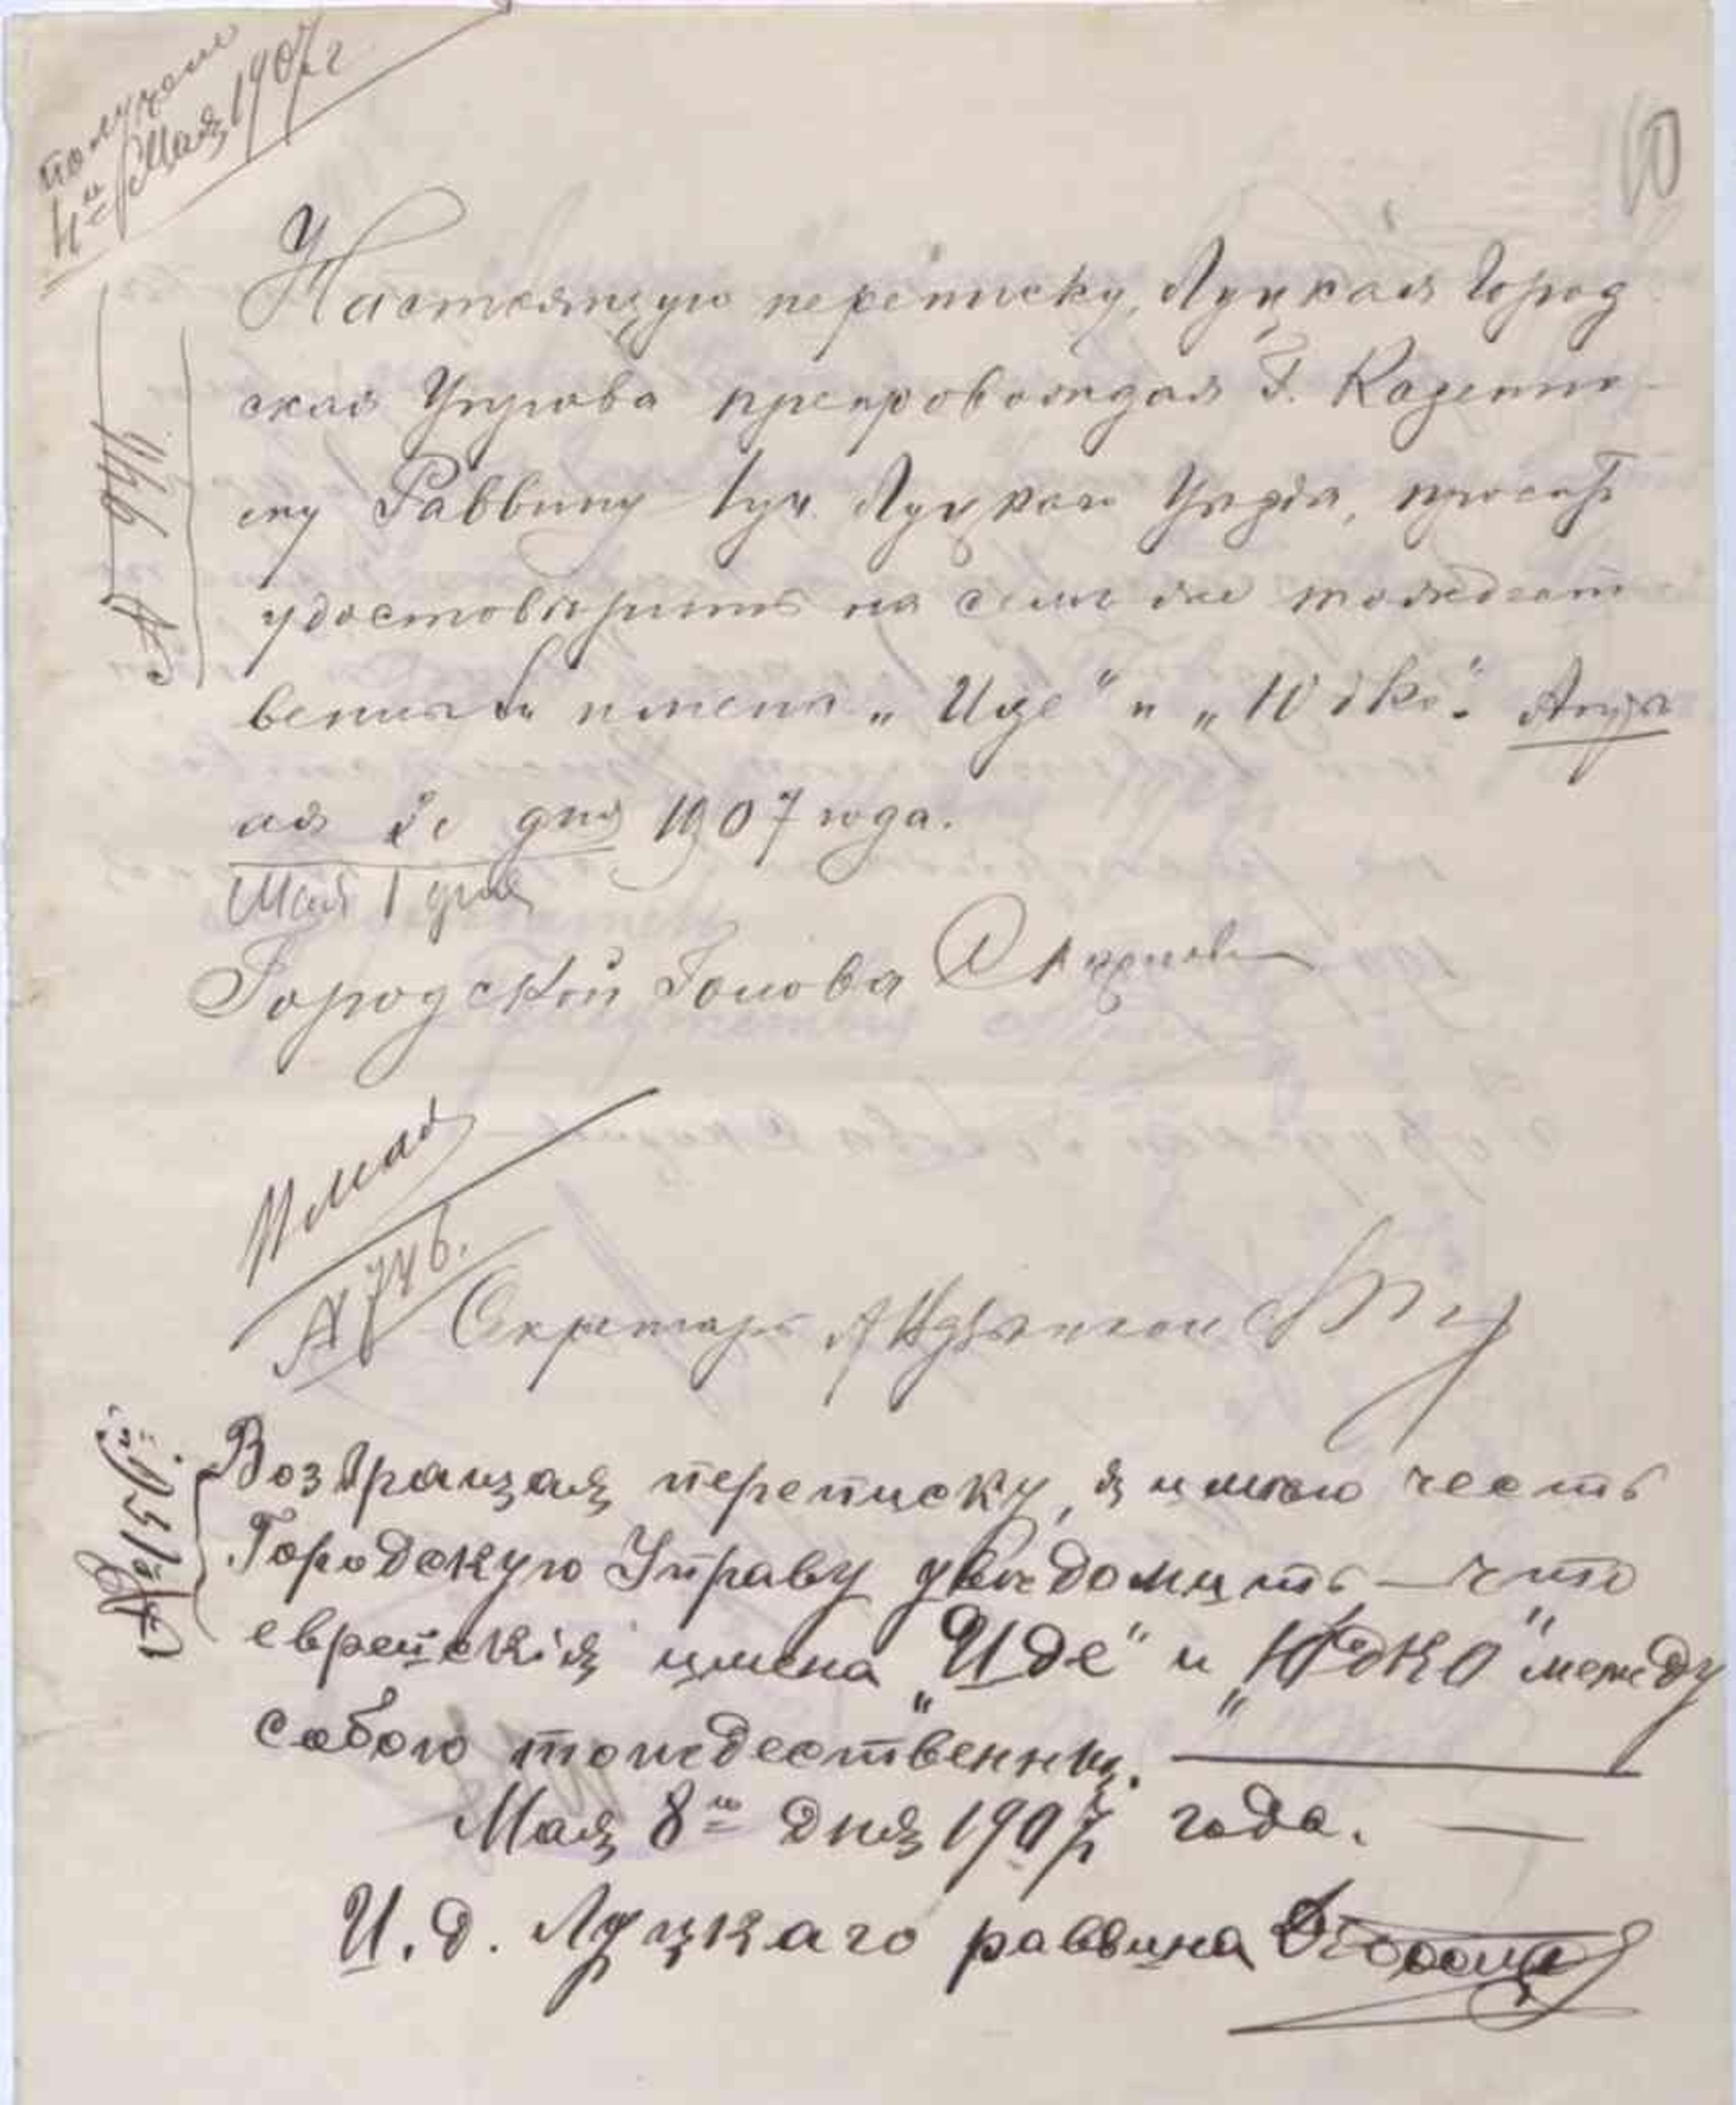 получено
4го Мая 1907 г
10
Настоящую переписку, Луцкая Город
ская Управа препровождая Г. Казенно-
му Раввину Луцкаго Уезда, просит
удостоверить на семъ же тождест
венны ли имена „Иде“ и „Юдко“. Апре
ля 30 дня 1907 года.
Мая 1 дня
Городской Голова
№ 946
11 мая
№ 746.
Секретарь
№ 151
Возвращая переписку, я имѣю честь
Городскую Управу увѣдомить — что
еврейскія имена „Иде“ и „Юдко“ между
собою тождественны.
Мая 8го дня 1907 года.
И. д. Луцкаго раввина